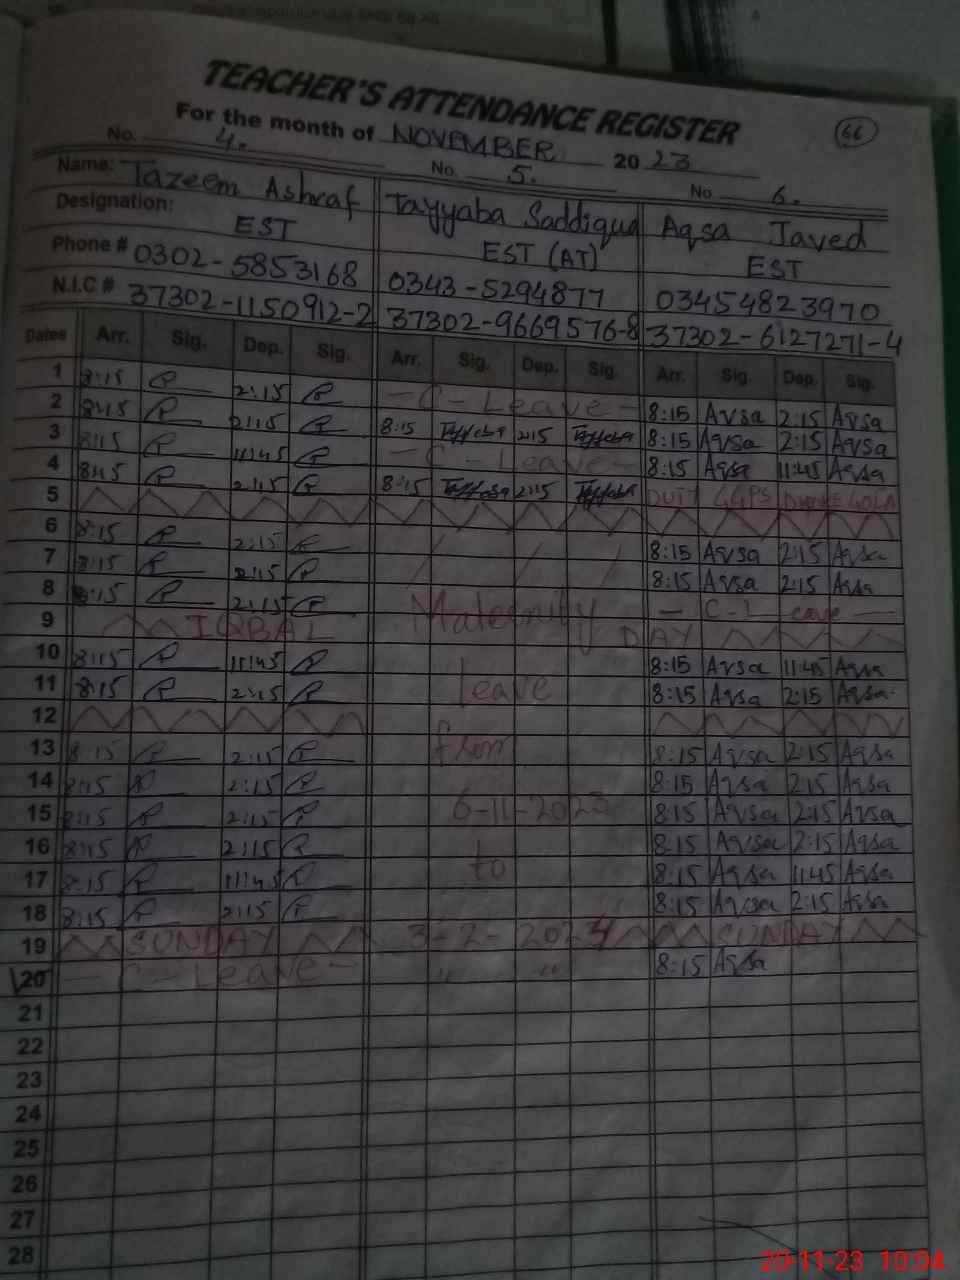 TEACHER'S ATTENDANCE REGISTER
66
For the month of NOVEMBER 2023
No. 4. No. 5. No 6.
Name: Tazeem Ashraf Tayyaba Saddiqua Aqsa Javed
Designation: EST EST (AT) EST
Phone # 0302-5853168 0343-5294877 03454823970
N.I.C # 37302-1150912-2 37302-9669576-8 37302-6127271-4
Dates Arr. Sig. Dep. Sig. Arr. Sig. Dep. Sig. Arr. Sig. Dep. Sig.
1 8:15 2:15 - C - Leave - 8:15 Aqsa 2:15 Aqsa
2 8:15 2:15 8:15 Tayyaba 2:15 Tayyaba 8:15 Aqsa 2:15 Aqsa
3 8:15 11:45 - C - Leave - 8:15 Aqsa 11:45 Aqsa
4 8:15 2:15 8:15 Tayyaba 2:15 Tayyaba DUTY GGPS
5
6 8:15 2:15 8:15 Aqsa 2:15 Aqsa
7 8:15 2:15 8:15 Aqsa 2:15 Aqsa
8 8:15 2:15 Maternity - C - Leave -
9 IQBAL DAY
10 8:15 11:45 8:15 Aqsa 11:45 Aqsa
11 8:15 2:15 Leave 8:15 Aqsa 2:15 Aqsa
12
13 8:15 2:15 from 8:15 Aqsa 2:15 Aqsa
14 8:15 2:15 8:15 Aqsa 2:15 Aqsa
15 8:15 2:15 6-11-2023 8:15 Aqsa 2:15 Aqsa
16 8:15 2:15 8:15 Aqsa 2:15 Aqsa
17 8:15 11:45 to 8:15 Aqsa 11:45 Aqsa
18 8:15 2:15 8:15 Aqsa 2:15 Aqsa
19 SUNDAY 3-2-2024 SUNDAY
20 - C - Leave - " " 8:15 Aqsa
21
22
23
24
25
26
27
28
20-11-23 10:04